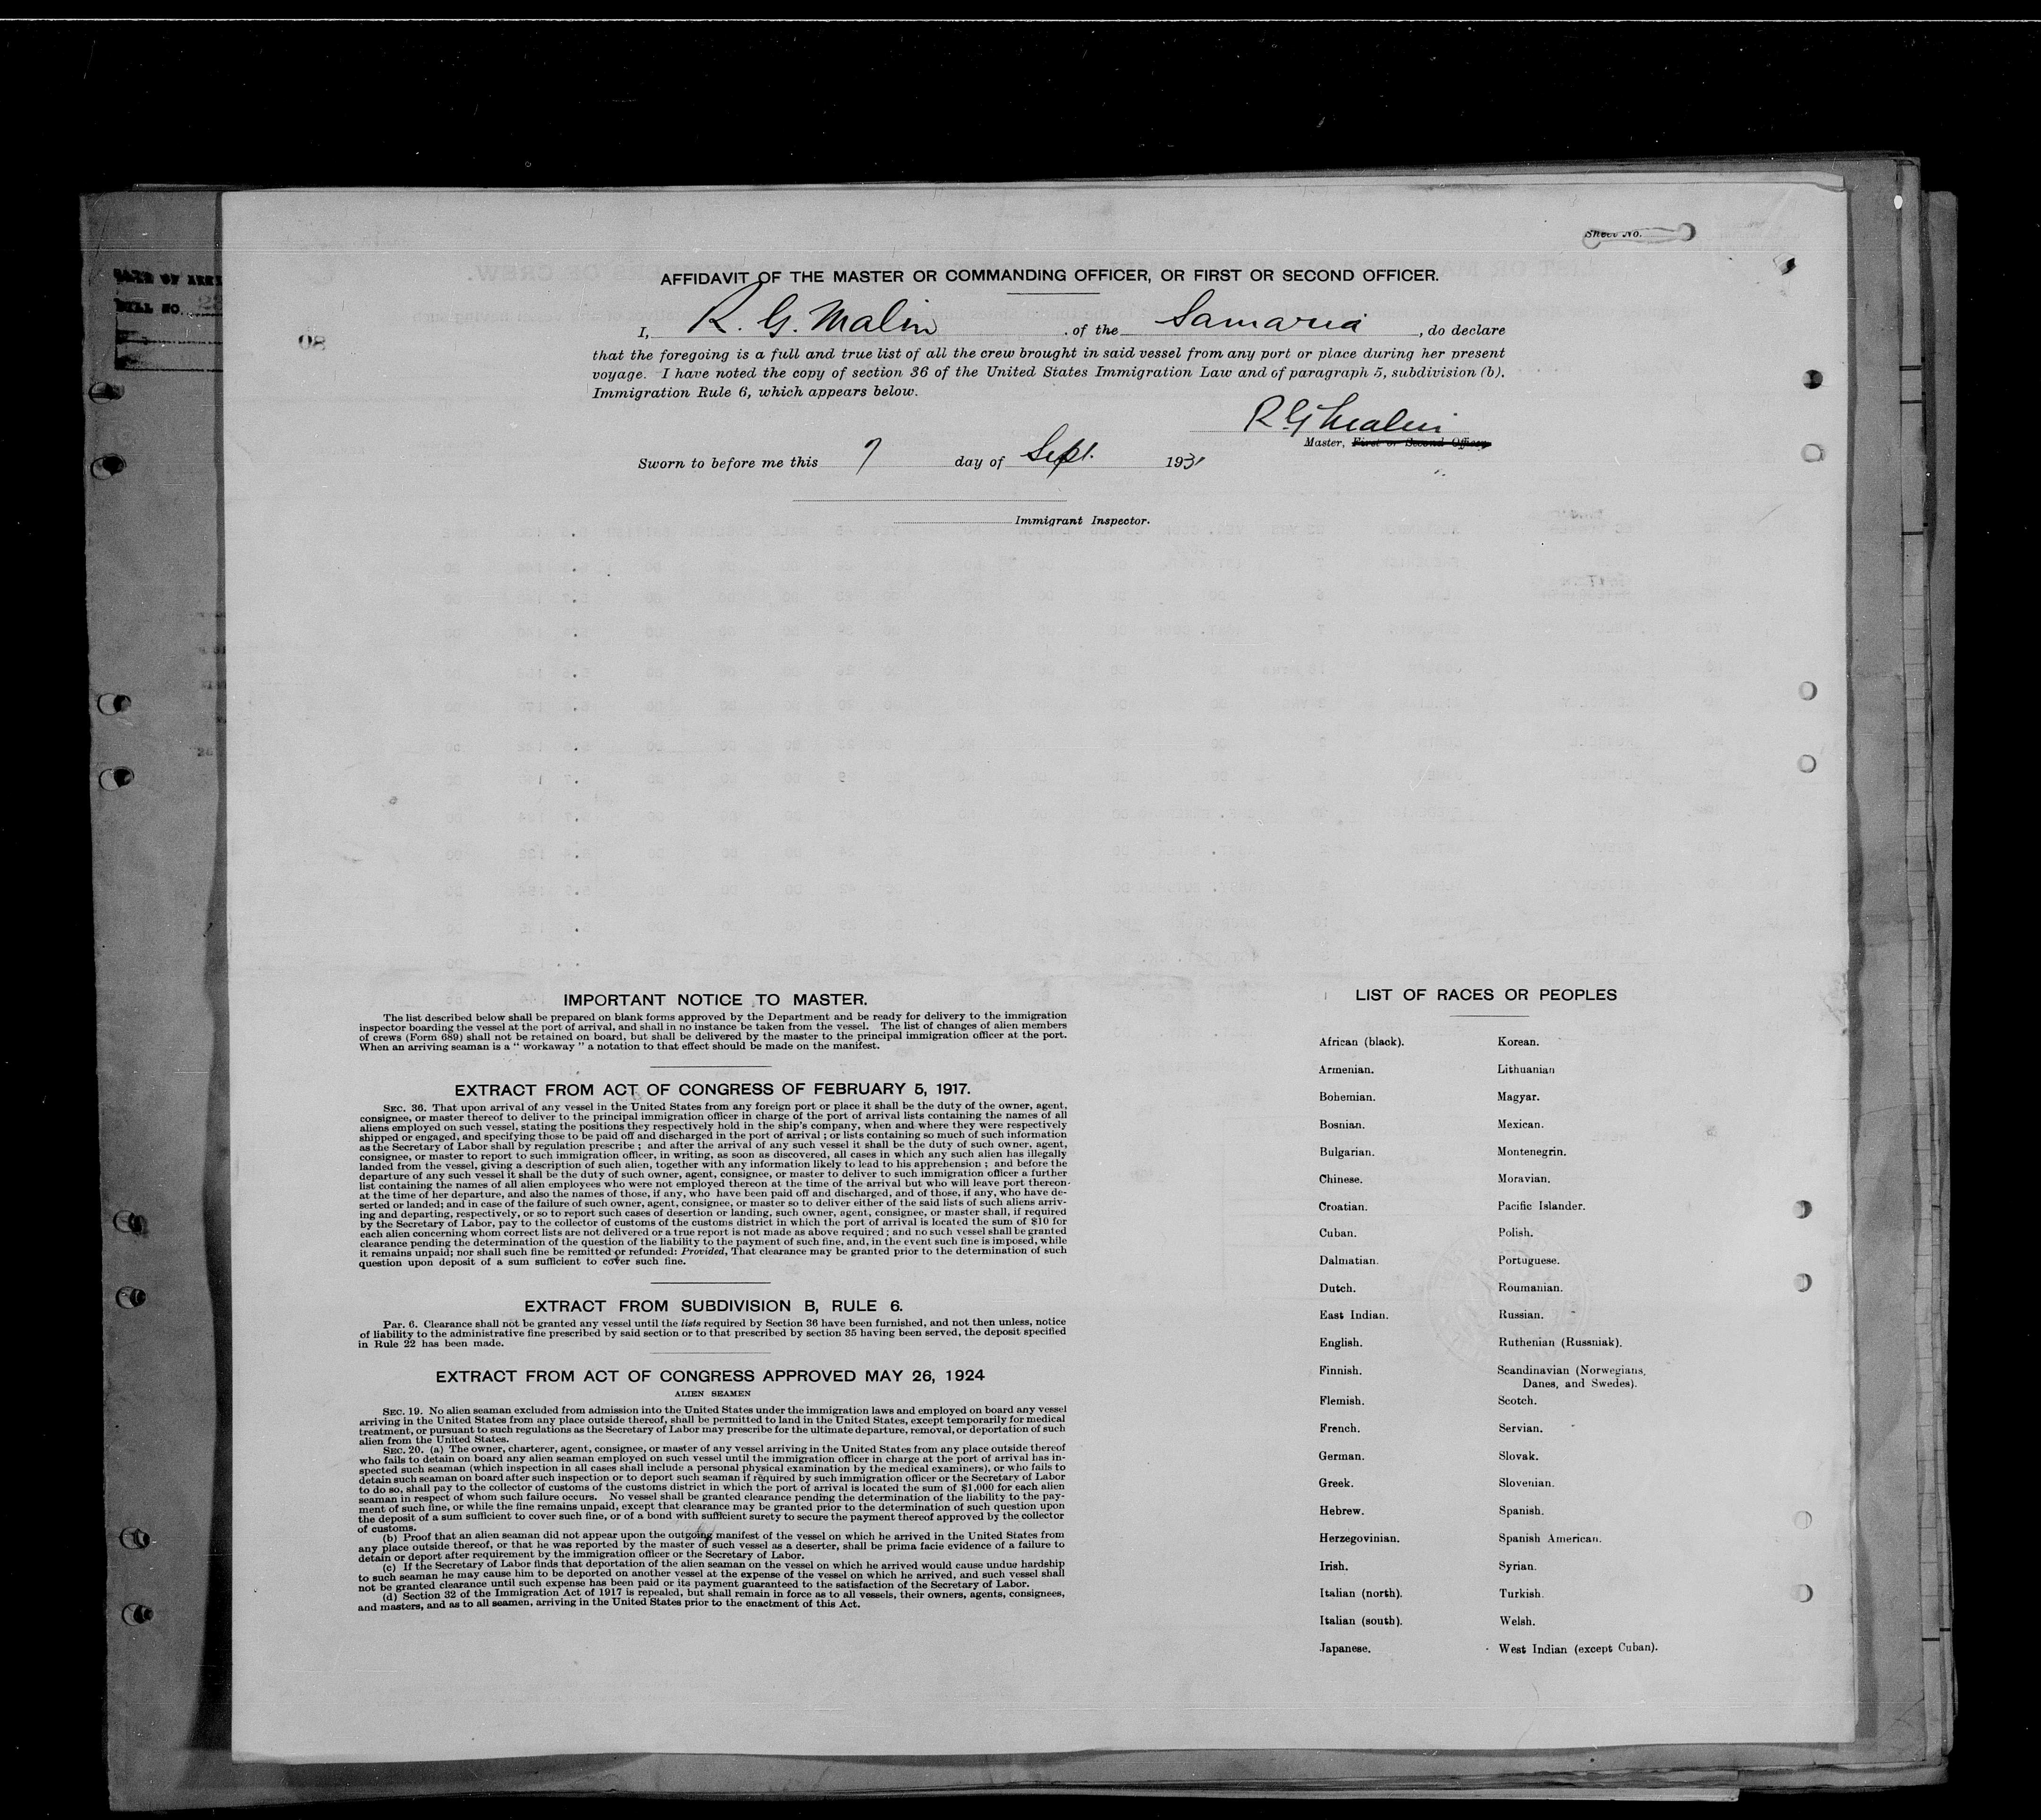 Sheet No.
AFFIDAVIT OF THE MASTER OR COMMANDING OFFICER, OR FIRST OR SECOND OFFICER.
I, R. G. Malin of the Samaria, do declare
that the foregoing is a full and true list of all the crew brought in said vessel from any port or place during her present
voyage. I have noted the copy of section 36 of the United States Immigration Law and of paragraph 5, subdivision (b).
Immigration Rule 6, which appears below.
R G Malin
Master, First or Second Officer
Sworn to before me this 7 day of Sept. 1931
Immigrant Inspector.
IMPORTANT NOTICE TO MASTER.
The list described below shall be prepared on blank forms approved by the Department and be ready for delivery to the immigration
inspector boarding the vessel at the port of arrival, and shall in no instance be taken from the vessel. The list of changes of alien members
of crews (Form 689) shall not be retained on board, but shall be delivered by the master to the principal immigration officer at the port.
When an arriving seaman is a " workaway " a notation to that effect should be made on the manifest.
EXTRACT FROM ACT OF CONGRESS OF FEBRUARY 5, 1917.
SEC. 36. That upon arrival of any vessel in the United States from any foreign port or place it shall be the duty of the owner, agent,
consignee, or master thereof to deliver to the principal immigration officer in charge of the port of arrival lists containing the names of all
aliens employed on such vessel, stating the positions they respectively hold in the ship's company, when and where they were respectively
shipped or engaged, and specifying those to be paid off and discharged in the port of arrival ; or lists containing so much of such information
as the Secretary of Labor shall by regulation prescribe ; and after the arrival of any such vessel it shall be the duty of such owner, agent,
consignee, or master to report to such immigration officer, in writing, as soon as discovered, all cases in which any such alien has illegally
landed from the vessel, giving a description of such alien, together with any information likely to lead to his apprehension ; and before the
departure of any such vessel it shall be the duty of such owner, agent, consignee, or master to deliver to such immigration officer a further
list containing the names of all alien employees who were not employed thereon at the time of the arrival but who will leave port thereon
at the time of her departure, and also the names of those, if any, who have been paid off and discharged, and of those, if any, who have de-
serted or landed; and in case of the failure of such owner, agent, consignee, or master so to deliver either of the said lists of such aliens arriv-
ing and departing, respectively, or so to report such cases of desertion or landing, such owner, agent, consignee, or master shall, if required
by the Secretary of Labor, pay to the collector of customs of the customs district in which the port of arrival is located the sum of $10 for
each alien concerning whom correct lists are not delivered or a true report is not made as above required ; and no such vessel shall be granted
clearance pending the determination of the question of the liability to the payment of such fine, and, in the event such fine is imposed, while
it remains unpaid; nor shall such fine be remitted or refunded: Provided, That clearance may be granted prior to the determination of such
question upon deposit of a sum sufficient to cover such fine.
EXTRACT FROM SUBDIVISION B, RULE 6.
Par. 6. Clearance shall not be granted any vessel until the lists required by Section 36 have been furnished, and not then unless, notice
of liability to the administrative fine prescribed by said section or to that prescribed by section 35 having been served, the deposit specified
in Rule 22 has been made.
EXTRACT FROM ACT OF CONGRESS APPROVED MAY 26, 1924
ALIEN SEAMEN
SEC. 19. No alien seaman excluded from admission into the United States under the immigration laws and employed on board any vessel
arriving in the United States from any place outside thereof, shall be permitted to land in the United States, except temporarily for medical
treatment, or pursuant to such regulations as the Secretary of Labor may prescribe for the ultimate departure, removal, or deportation of such
alien from the United States.
SEC. 20. (a) The owner, charterer, agent, consignee, or master of any vessel arriving in the United States from any place outside thereof
who fails to detain on board any alien seaman employed on such vessel until the immigration officer in charge at the port of arrival has in-
spected such seaman (which inspection in all cases shall include a personal physical examination by the medical examiners), or who fails to
detain such seaman on board after such inspection or to deport such seaman if required by such immigration officer or the Secretary of Labor
to do so, shall pay to the collector of customs of the customs district in which the port of arrival is located the sum of $1,000 for each alien
seaman in respect of whom such failure occurs. No vessel shall be granted clearance pending the determination of the liability to the pay-
ment of such fine, or while the fine remains unpaid, except that clearance may be granted prior to the determination of such question upon
the deposit of a sum sufficient to cover such fine, or of a bond with sufficient surety to secure the payment thereof approved by the collector
of customs.
(b) Proof that an alien seaman did not appear upon the outgoing manifest of the vessel on which he arrived in the United States from
any place outside thereof, or that he was reported by the master of such vessel as a deserter, shall be prima facie evidence of a failure to
detain or deport after requirement by the immigration officer or the Secretary of Labor.
(c) If the Secretary of Labor finds that deportation of the alien seaman on the vessel on which he arrived would cause undue hardship
to such seaman he may cause him to be deported on another vessel at the expense of the vessel on which he arrived, and such vessel shall
not be granted clearance until such expense has been paid or its payment guaranteed to the satisfaction of the Secretary of Labor.
(d) Section 32 of the Immigration Act of 1917 is repealed, but shall remain in force as to all vessels, their owners, agents, consignees,
and masters, and as to all seamen, arriving in the United States prior to the enactment of this Act.
LIST OF RACES OR PEOPLES
African (black). Korean.
Armenian. Lithuanian
Bohemian. Magyar.
Bosnian. Mexican.
Bulgarian. Montenegrin.
Chinese. Moravian.
Croatian. Pacific Islander.
Cuban. Polish.
Dalmatian. Portuguese.
Dutch. Roumanian.
East Indian. Russian.
English. Ruthenian (Russniak).
Finnish. Scandinavian (Norwegians,
Danes, and Swedes).
Flemish. Scotch.
French. Servian.
German. Slovak.
Greek. Slovenian.
Hebrew. Spanish.
Herzegovinian. Spanish American.
Irish. Syrian.
Italian (north). Turkish.
Italian (south). Welsh.
Japanese. West Indian (except Cuban).